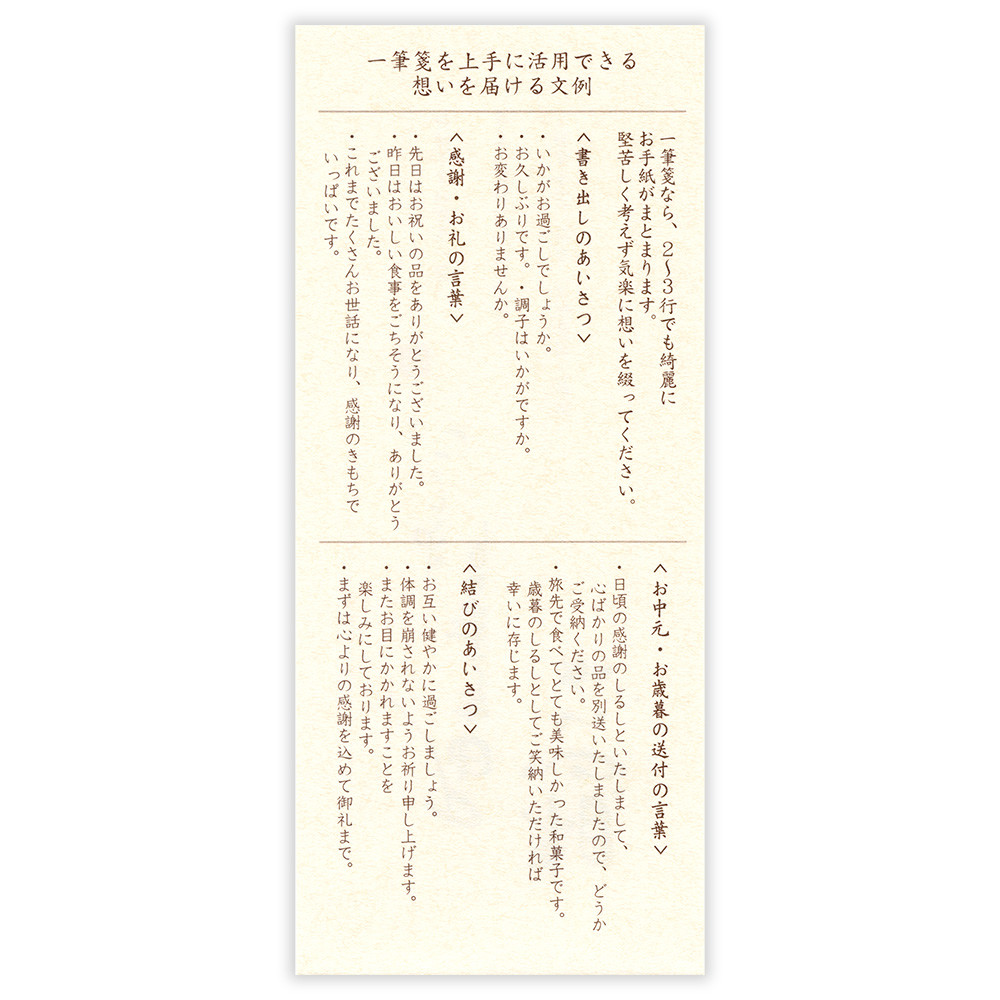 一筆箋を上手に活用できる
想いを届ける文例
一筆箋なら、2〜3行でも綺麗に
お手紙がまとまります。
堅苦しく考えず気楽に想いを綴ってください。
<書き出しのあいさつ>
・いかがお過ごしでしょうか。
・お久しぶりです。・調子はいかがですか。
・お変わりありませんか。
<感謝・お礼の言葉>
・先日はお祝いの品をありがとうございました。
・昨日はおいしい食事をごちそうになり、ありがとう
ございました。
・これまでたくさんお世話になり、感謝のきもちで
いっぱいです。
<お中元・お歳暮の送付の言葉>
・日頃の感謝のしるしといたしまして、
心ばかりの品を別送いたしましたので、どうか
ご受納ください。
・旅先で食べてとても美味しかった和菓子です。
歳暮のしるしとしてご笑納いただければ
幸いに存じます。
<結びのあいさつ>
・お互い健やかに過ごしましょう。
・体調を崩されないようお祈り申し上げます。
・またお目にかかれますことを
楽しみにしております。
・まずは心よりの感謝を込めて御礼まで。